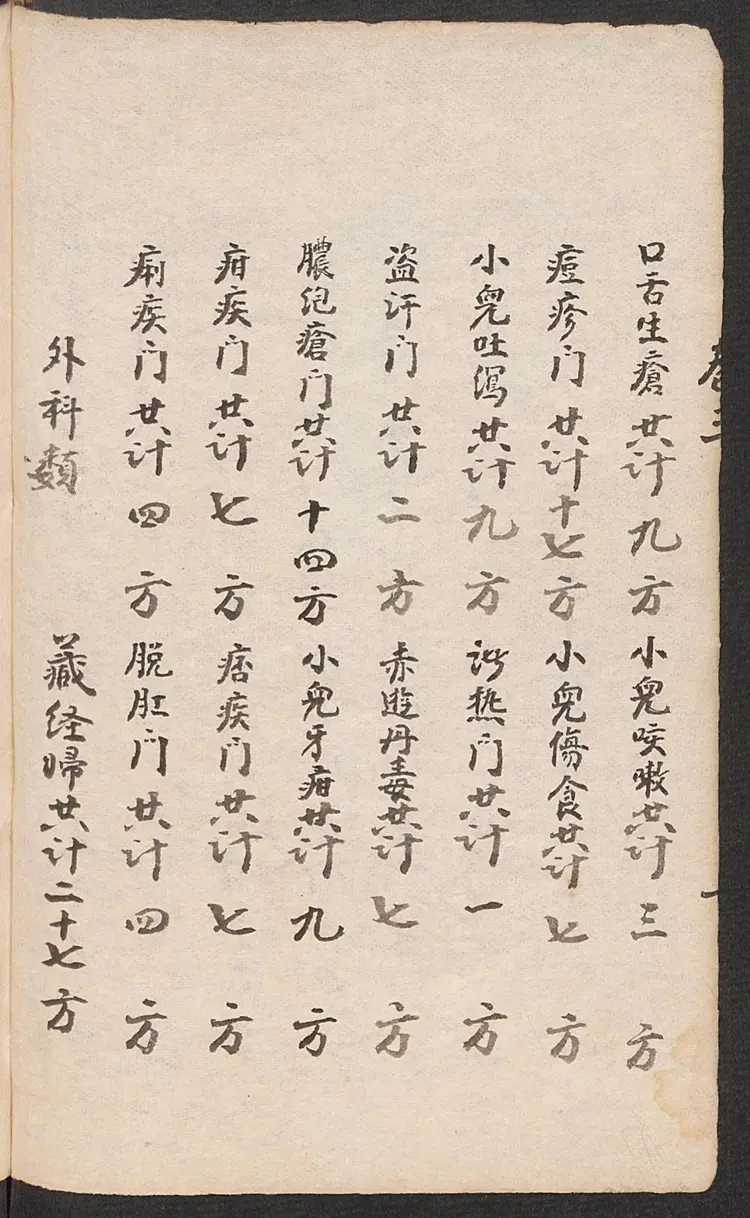 卷三
一
口舌生瘡共計九方 小兒咳嗽共計三方
痘疹门共计十七方 小兒傷食共计七方
小兒吐瀉共计九方 热门共计一方
盗汗门共计二方 赤遊丹毒共计七方
膿疱瘡门共计十四方 小兒牙疳共计九方
疳疾门共计七方 痞疾门共计七方
痢疾门共计四方 脱肛门共计四方
外科類 藏经歸共计二十七方